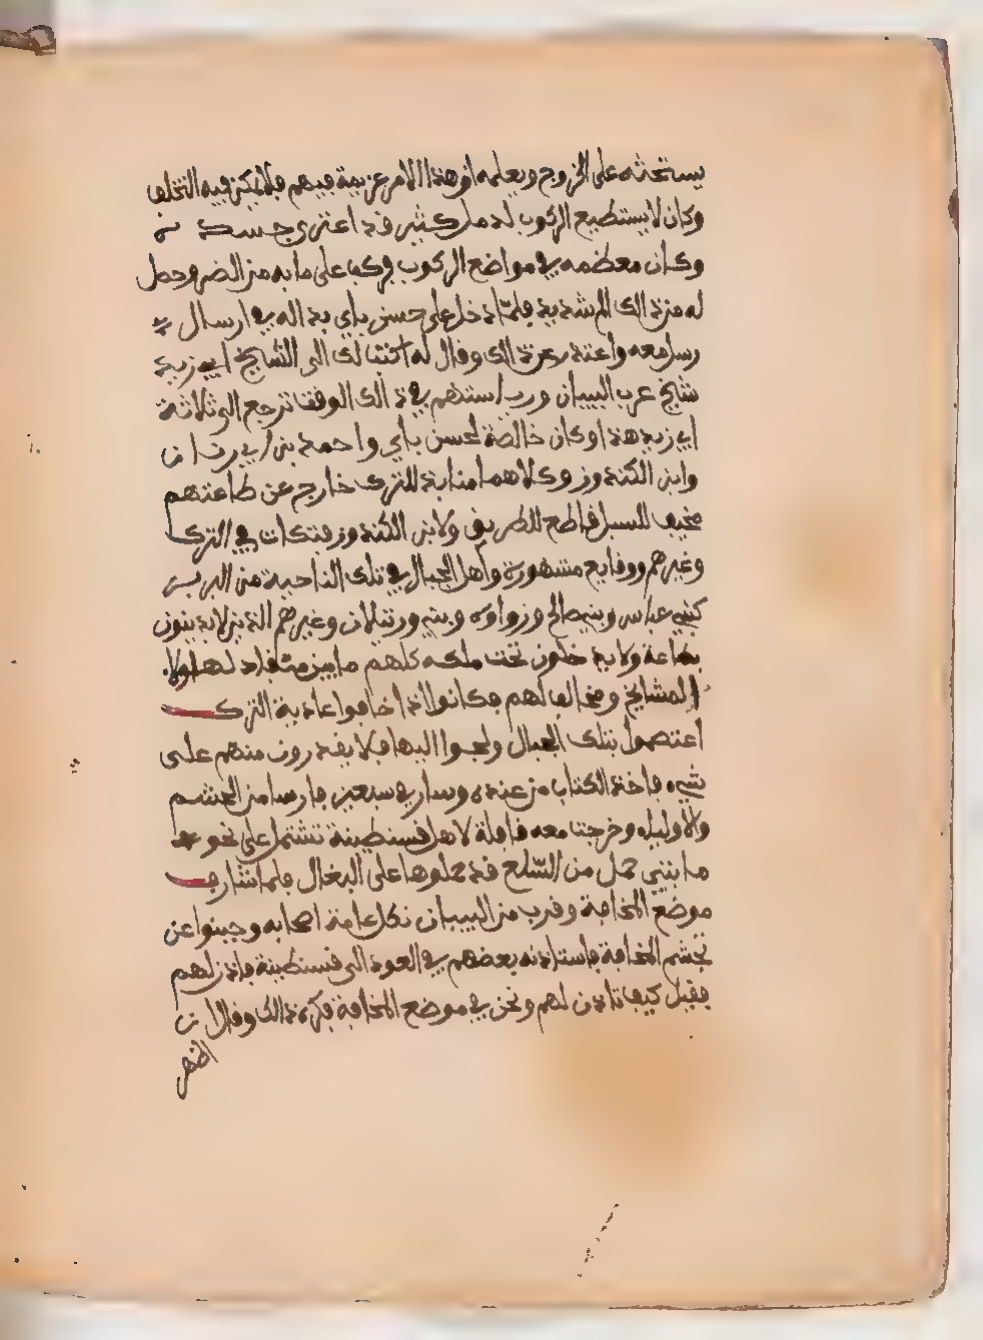 يستحثه على الخروج ويعلمه ان هذا الامر عزيمة فيهم فلا يمكن فيه التخلف
وكان لا يستطيع الركوب لدمل كثير قد اعترى جسده
وكان معظمه في مواضع الركوب فركب على ما به من الضر وحصل
له من ذالك الم شديد فلما دخل على حسن باي بدا له في ارسال
رسل معه واعتذر عن ذالك وقال له اكتب لك الى الشايخ ابي زيد
شايخ عرب البيبان ورياستهم في ذالك الوقت ترجع الى ثلاثة
ابي زيد هذا وكان خالصة لحسن باي واحمد بن
وابن الكندوز وكلاهما منابذ للترك خارج عن طاعتهم
مخيف للسبل قاطع للطريق ولابن الكندوز فتكات في الترك
وغيرهم ووقايع مشهورة واهل الجبال في تلك الناحية من البربر
كبني عباس وبني صالح وزواوه وبني ورتيلان وغيرهم الذين لا يدينون
بطاعة ولا يدخلون تحت ملكه كلهم ما بين منقاد لهاولاء
المشايخ ومخالف لهم فكانوا اذا خافوا عادية الترك
اعتصموا بتلك الجبال ولجوا اليها فلا يقدرون منهم على
شيء فاخذ الكتاب من عنده وسار في سبعين فارسا من الحشم
والاوليا وخرجت معه قافلة لاهل قسنطينة تشتمل على نحو
مايتي حمل من السلع قد حملوها على البغال فلما شارف
موضع المخافة وقرب من البيبان نكل عامة اصحابه وجبنوا عن
تجشم المخافة فاستاذنه بعضهم في العود الى قسنطينة فاذن لهم
فقيل كيف تاذن لهم ونحن في موضع المخافة فكره ذالك وقال ان